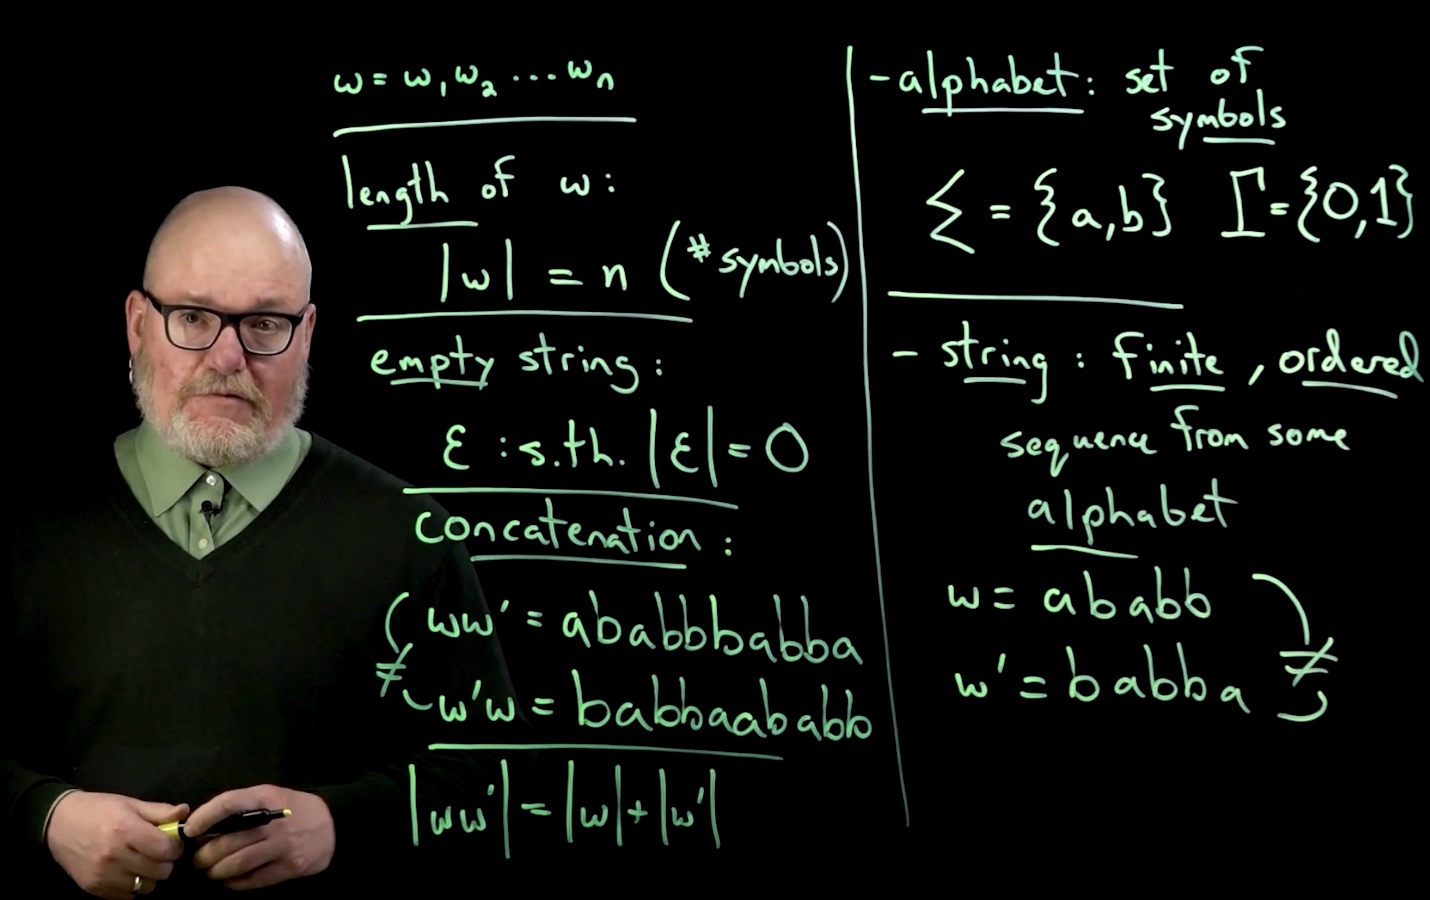 w = w₁w₂ ... wₙ
length of w:
|w| = n (# symbols)
empty string:
ε : s.th. |ε| = 0
concatenation:
ww' = ababbbabba
≠
w'w = babbaababb
|ww'| = |w| + |w'|
- alphabet: set of
symbols
Σ = {a,b} Γ = {0,1}
- string : finite, ordered
sequence from some
alphabet
w = ababb
≠
w' = babba